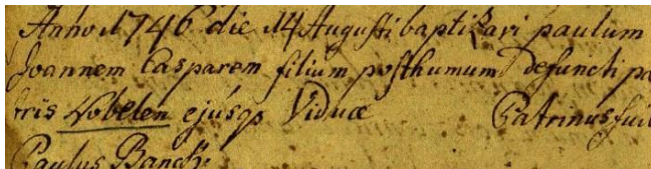 Anno 1746 die 14 Augusti baptizavi paulum
Joannem Casparem filium posthumum defuncti pa
tris Nobelen ejúsqs Viduæ Patrinus fuit
Paulus Banck